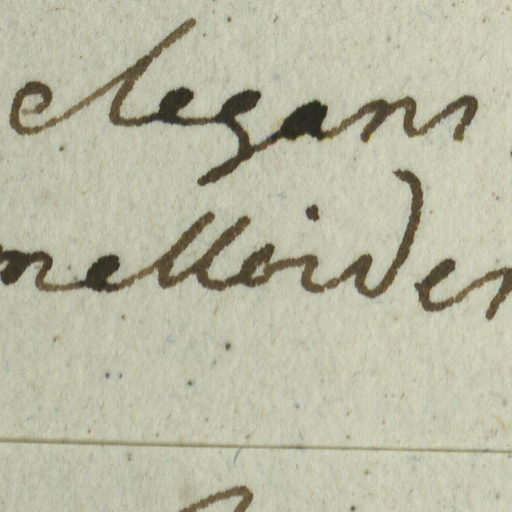 elegans
melloides